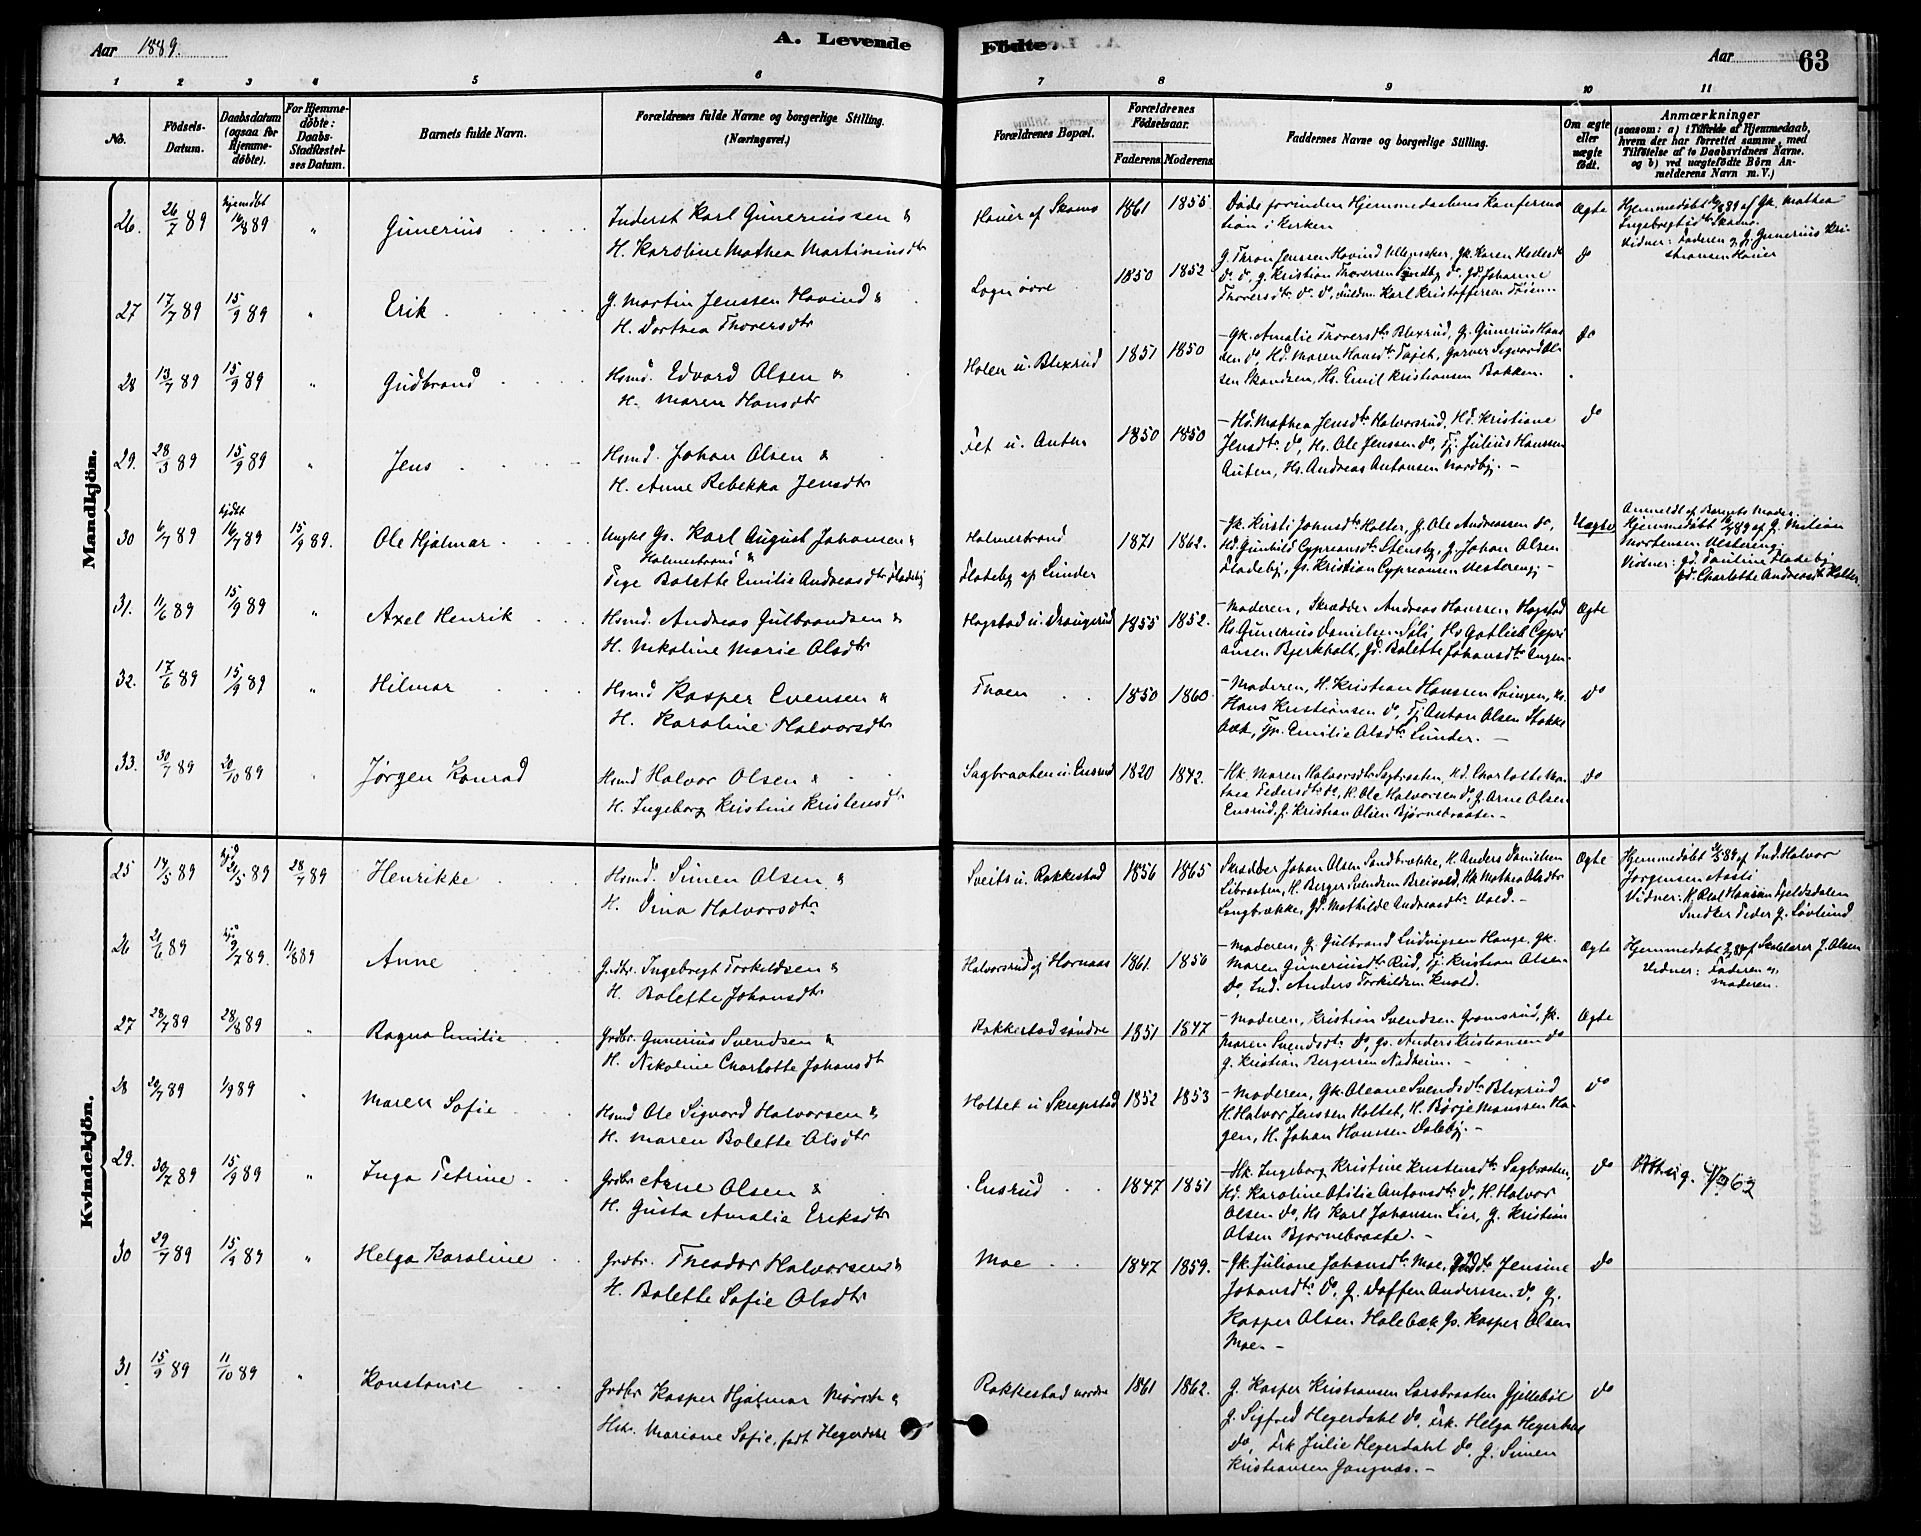 Aar 1889.
A. Levende
Födte.
Aar
63
1 2 3 4 5 6 7 8 9 10 11
No.
Födsels-Datum.
Daabsdatum (ogsaa for Hjemme-döbte).
For Hjemme-döbte: Daabs-Stadfæstel-ses Datum.
Barnets fulde Navn.
Forældrenes fulde Navne og borgerlige Stilling.
(Næringsvei.)
Forældrenes Bopæl.
Forældrenes Födselsaar.
Faderens Moderens
Faddernes Navne og borgerlige Stilling.
Om ægte eller uægte födt.
Anmærkninger
(saasom: a) i Tilfælde af Hjemmedaab, hvem der har forrettet samme, med Tilföielse af to Daabsvidners Navne. og b) ved uægtefödte Börn An-melderens Navn m. V.)
Mandkjön.
26. 26/7 89 hjemdöbt 16/8 89 " Gunerius
Inderst Karl Guneriussen &
H. Karoline Mathea Martinusdtr
1861 1855. Døde forinden Hjemmedaabens Konfirma
tion i Kirken
Ægte
Hjemmedøbt 16/8 89 af Gk. Mathea
Vidner: Faderen og Gunerius Kri-
stiansen Hauer
27 17/7 89 15/9 89 " Erik
G. Martin Jenssen Hovind &
H. Dorthea Thoversdtr
Logn øvre 1850 1852
G. Thron Jenssen Hovind Ullensaker, Gk. Karen
do
28 13/7 89 15/9 89 " Gudbrand
Hsmd. Edvard Olsen &
H. Maren Hansdtr
Holen u. Blixrud 1851 1850
- Gk. Amalie Thoversdtr Blixrud, G. Gunerius Han
sen do, Hd. Maren Hansdtr Tajet, Garver Sigvard Ol-
sen Skandsen, Hs. Emil Kristiansen Bakken.
do
29. 28/3 89 15/9 89 " Jens
Hsmd. Johan Olsen &
H. Anne Rebekka Jensdtr
Fet u. Auten 1850 1850
- Hd. Mathea Jensdtr Halvorsrud, Hd. Kristiane
Jensdtr do, Hs. Ole Jenssen do, Tj. Julius Hanssen
Auten, Hs. Andreas Antonsen Nordby. -
do
30 6/7 89 hjdbt 16/7 89 15/9 89. Ole Hjalmar
Ungkl Gs. Karl August Johansen
Holmestrand &
Pige Bolette Emilie Andreasdtr Fladeby
Holmestrand
Fladeby af Lunder
1871 1862.
- Gk. Kirsti Johnsdtr Holter, G. Ole Andreassen do,
Hd. Gunhild Cypriansdtr Stensby, G. Johan Olsen
Fladeby, Gs. Kristian Cypriansen Vestereng -
Uægte
Anmeldt af Barnets Moder.
Mortensen Vestereng.
Vidner: Gd. Pauline Fladeby
Gd. Charlotte Andreasdtr Holter.
31. 11/6 89 15/9 89 " Axel Henrik
Hsmd. Andreas Gulbrandsen &
H. Nikoline Marie Olsdtr
Hogstad u. Draugerud 1855 1852.
- Moderen, Skrædder Andreas Hanssen Hogstad
Hs. Gunerius Danielsen Søli, Hs. Gotlieb Cypri
ansen Bjerkholt, Gd. Bolette Johansdtr Engen.
Ægte
32. 17/6 89 15/9 89 " Hilmar
Hsmd Kasper Evensen &
H. Karoline Halvorsdtr
Thoen 1850 1860.
- Moderen, H. Kristian Hanssen Svingen, Hs.
Hans Kristiansen do, Tj Anton Olsen Stokke
bæk, Tp. Emilie Olsdtr Lunder. -
do
33. 30/7 89 20/10 89 " Jørgen Konrad
Hsmd Halvor Olsen &
H. Ingeborg Kristine Kristensdtr
Sagbraaten u. Ensrud 1820 1842.
- Hk. Maren Halvorsdtr Sagbraaten, Hd. Charlotte Ma-
thea Pedersdtr do, H. Ole Halvorsen do, G. Arne Olsen
Ensrud, G. Kristian Olsen Bjørnebraaten -
do
Kvindekjön.
25 14/5 89 hjd 21/5 89 28/7 89 Henrikke
Hsmd. Simen Olsen &
H. Dina Halvorsdtr
Sveits u. Rakkestad 1856 1865
Skrædder Johan Olsen Sandbrække, H. Anders Danielsen
Libraaten, H. Berger Svendsen Breivold, Hk Mathea Olsdtr
Langbrække, Gd. Mathilde Andreasdtr Vold. -
Ægte
Hjemmedøbt 21/5 89 af Ind. Halvor
Jørgensen Aasti
Vidner: H. Karl Hansen Fjeldsdalen
Snedker Peder G. Løvlund
26 21/6 89 hjd 2/7 89. 11/8 89 Anne
Grdbr. Ingebregt Torkildsen &
H. Bolette Johansdtr
Halvorsrud af Hornaas 1861. 1856
- Moderen, G. Gulbrand Ludvigsen Hauge, Gk.
Maren Gunerinsdtr Rud, Tj. Kristian Olsen
do, Ind. Anders Torkildsen Knold.
Ægte
Hjemmedøbt 2/7 89 af Skolelærer J. Olsen
Vidner: Faderen og
Moderen.
27 28/7 89 28/8 89 " Ragna Emilie
Grdbr. Gunerius Svendsen &
H. Nikoline Charlotte Johansdt
Rakkestad søndre 1851 1847
- Moderen, Kristian Svendsen Gramsrud, Gk.
Maren Svendsdtr do, Gs. Anders Kristiansen do
G. Kristian Bergersen Nadheim. -
Ægte
28 20/7 89 1/9 89 " Maren Sofie
Hsmd Ole Sigvard Halvorsen &
H. Maren Bolette Olsdtr
Holtet u Skrepstad 1852 1853
- Moderen, Gk. Oleane Svendsdtr Blixrud
H. Halvor Jenssen Holtet, H. Børje Monssen Ha-
gen, H. Johan Hanssen Daleby. -
do
29. 30/7 89 15/9 89 " Inga Petrine
Grdbr Arne Olsen &
H. Gusta Amalie Eriksdtr
Ensrud 1847 1851
- Hk. Ingeborg Kristine Kristensdtr Sagbraaten,
Hd. Karoline Otilie Antonsdtr do, H. Halvor
Olsen do, Hs Karl Johansen Lier, G. Kristian
Olsen Bjørnebraate. -
do
30 29/7 89 15/9 89 " Helga Karoline
Grdbr. Theodor Halvorsen &
H. Bolette Sofie Olsdtr
Moe 1847 1859.
- Gk. Juliane Johansdtr Moe, Jensine
Johansdtr do, G. Doffen Anderssen do, G.
Kasper Olsen Holebæk, Gs. Kasper Olsen
Moe. -
do
31 15/9 89 11/10 89 " Konstance
Grdbr Kasper Hjalmar Mørch &
Htr. Mariane Sofie, født Heyerdahl
Rakkestad nordre 1861 1862.
G. Kasper Kristiansen Larsbraaten Gjellebøl
G. Sigfred Heyerdahl do, Frk. Helga Heyerdahl
do, Frk Julie Heyerdahl do, G. Simen
Kristiansen Gangnæs. -
do